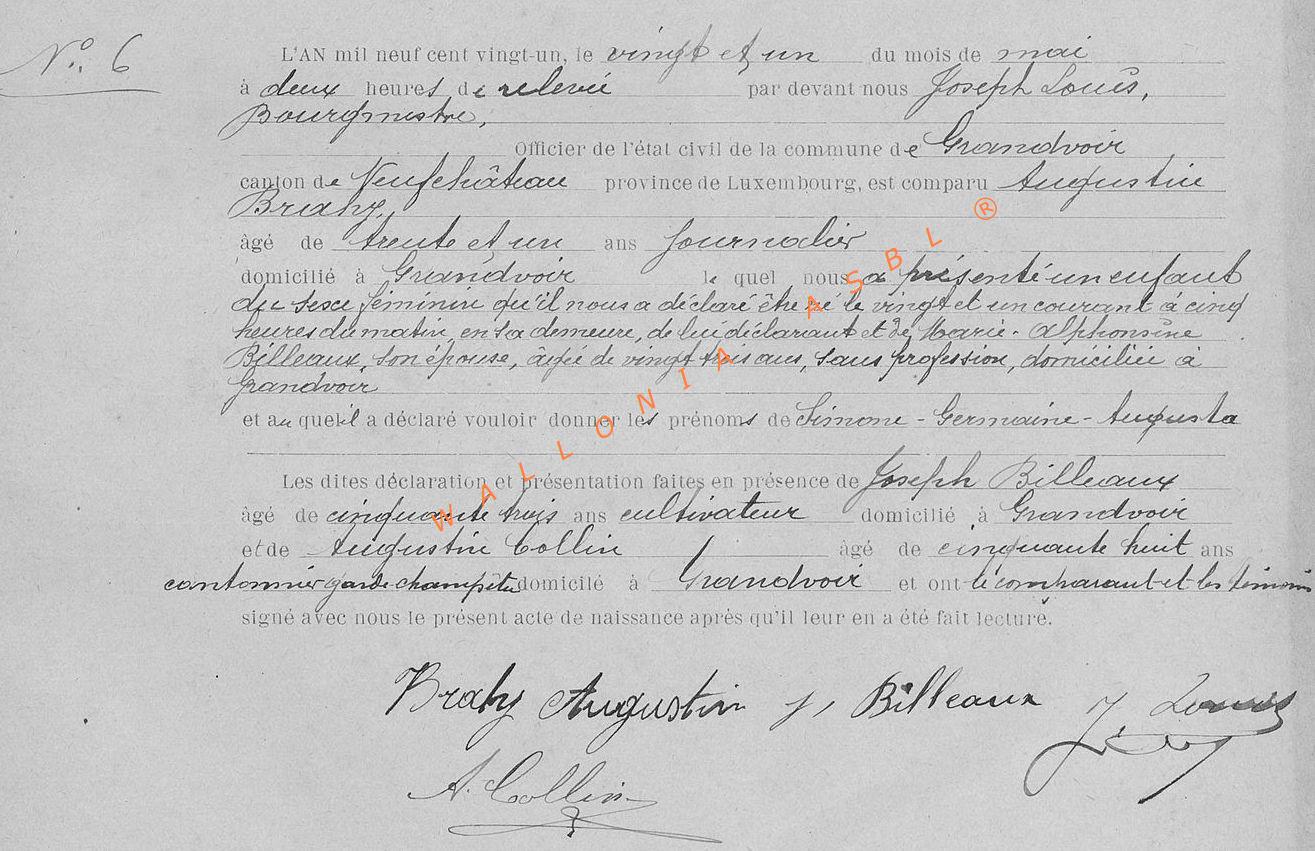 N° 6
L'AN mil neuf cent vingt-un, le vingt et un du mois de mai
à deux heures de relevée par devant nous Joseph Louis,
Bourgmestre,
Officier de l'état civil de la commune de Grandvoir
canton de Neufchâteau province de Luxembourg, est comparu Augustin
Brahy,
âgé de trente et un ans journalier
domicilié à Grandvoir le quel nous a présenté un enfant
du sexe féminin qu'il nous a déclaré être né le vingt et un courant à cinq
heures du matin, en sa demeure, de lui déclarant et de Marie-Alphonsine
Billeaux, son épouse, âgée de vingt trois ans, sans profession, domiciliée à
Grandvoir
et au quel il a déclaré vouloir donner les prénoms de Simone-Germaine-Augusta
Les dites déclaration et présentation faites en présence de Joseph Billeaux
âgé de cinquante trois ans cultivateur domicilié à Grandvoir
et de Augustin Collin âgé de cinquante huit ans
cantonnier garde champêtre domicilé à Grandvoir et ont le comparant et les témoins
signé avec nous le présent acte de naissance après qu'il leur en a été fait lecture.
Brahy Augustin J, Billeaux J. Louis
A. Collin
WALLONIA ASBL ®